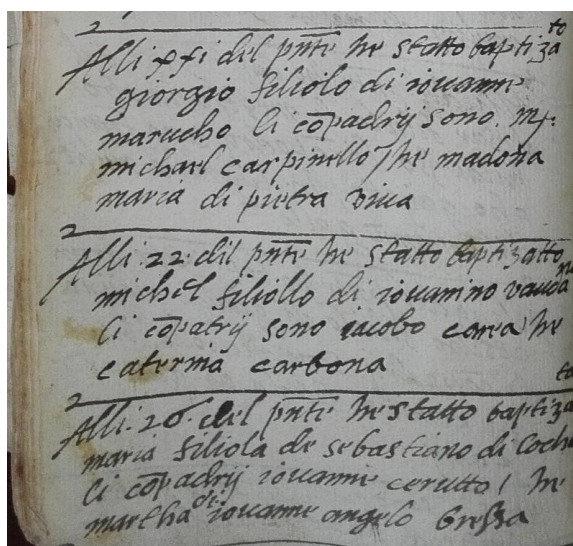 2
Alli xxi del pnte he statto baptizato
giorgio filiolo di iouanne
marucho li cōpadrij sono. mr.
michael carpinello he madōna
maria di pietra viua
2
Alli. 22. dil pnte he statto baptizatto
michel filiollo di iouanino
li cōpatrij sono iacobo carea he
caterina carbona
2
Alli. 26. del pnte he statto baptizato
maria filiola de sebastiano di
li cōpadrij iouanne cerutto / he
martha de iouanne angelo bressa